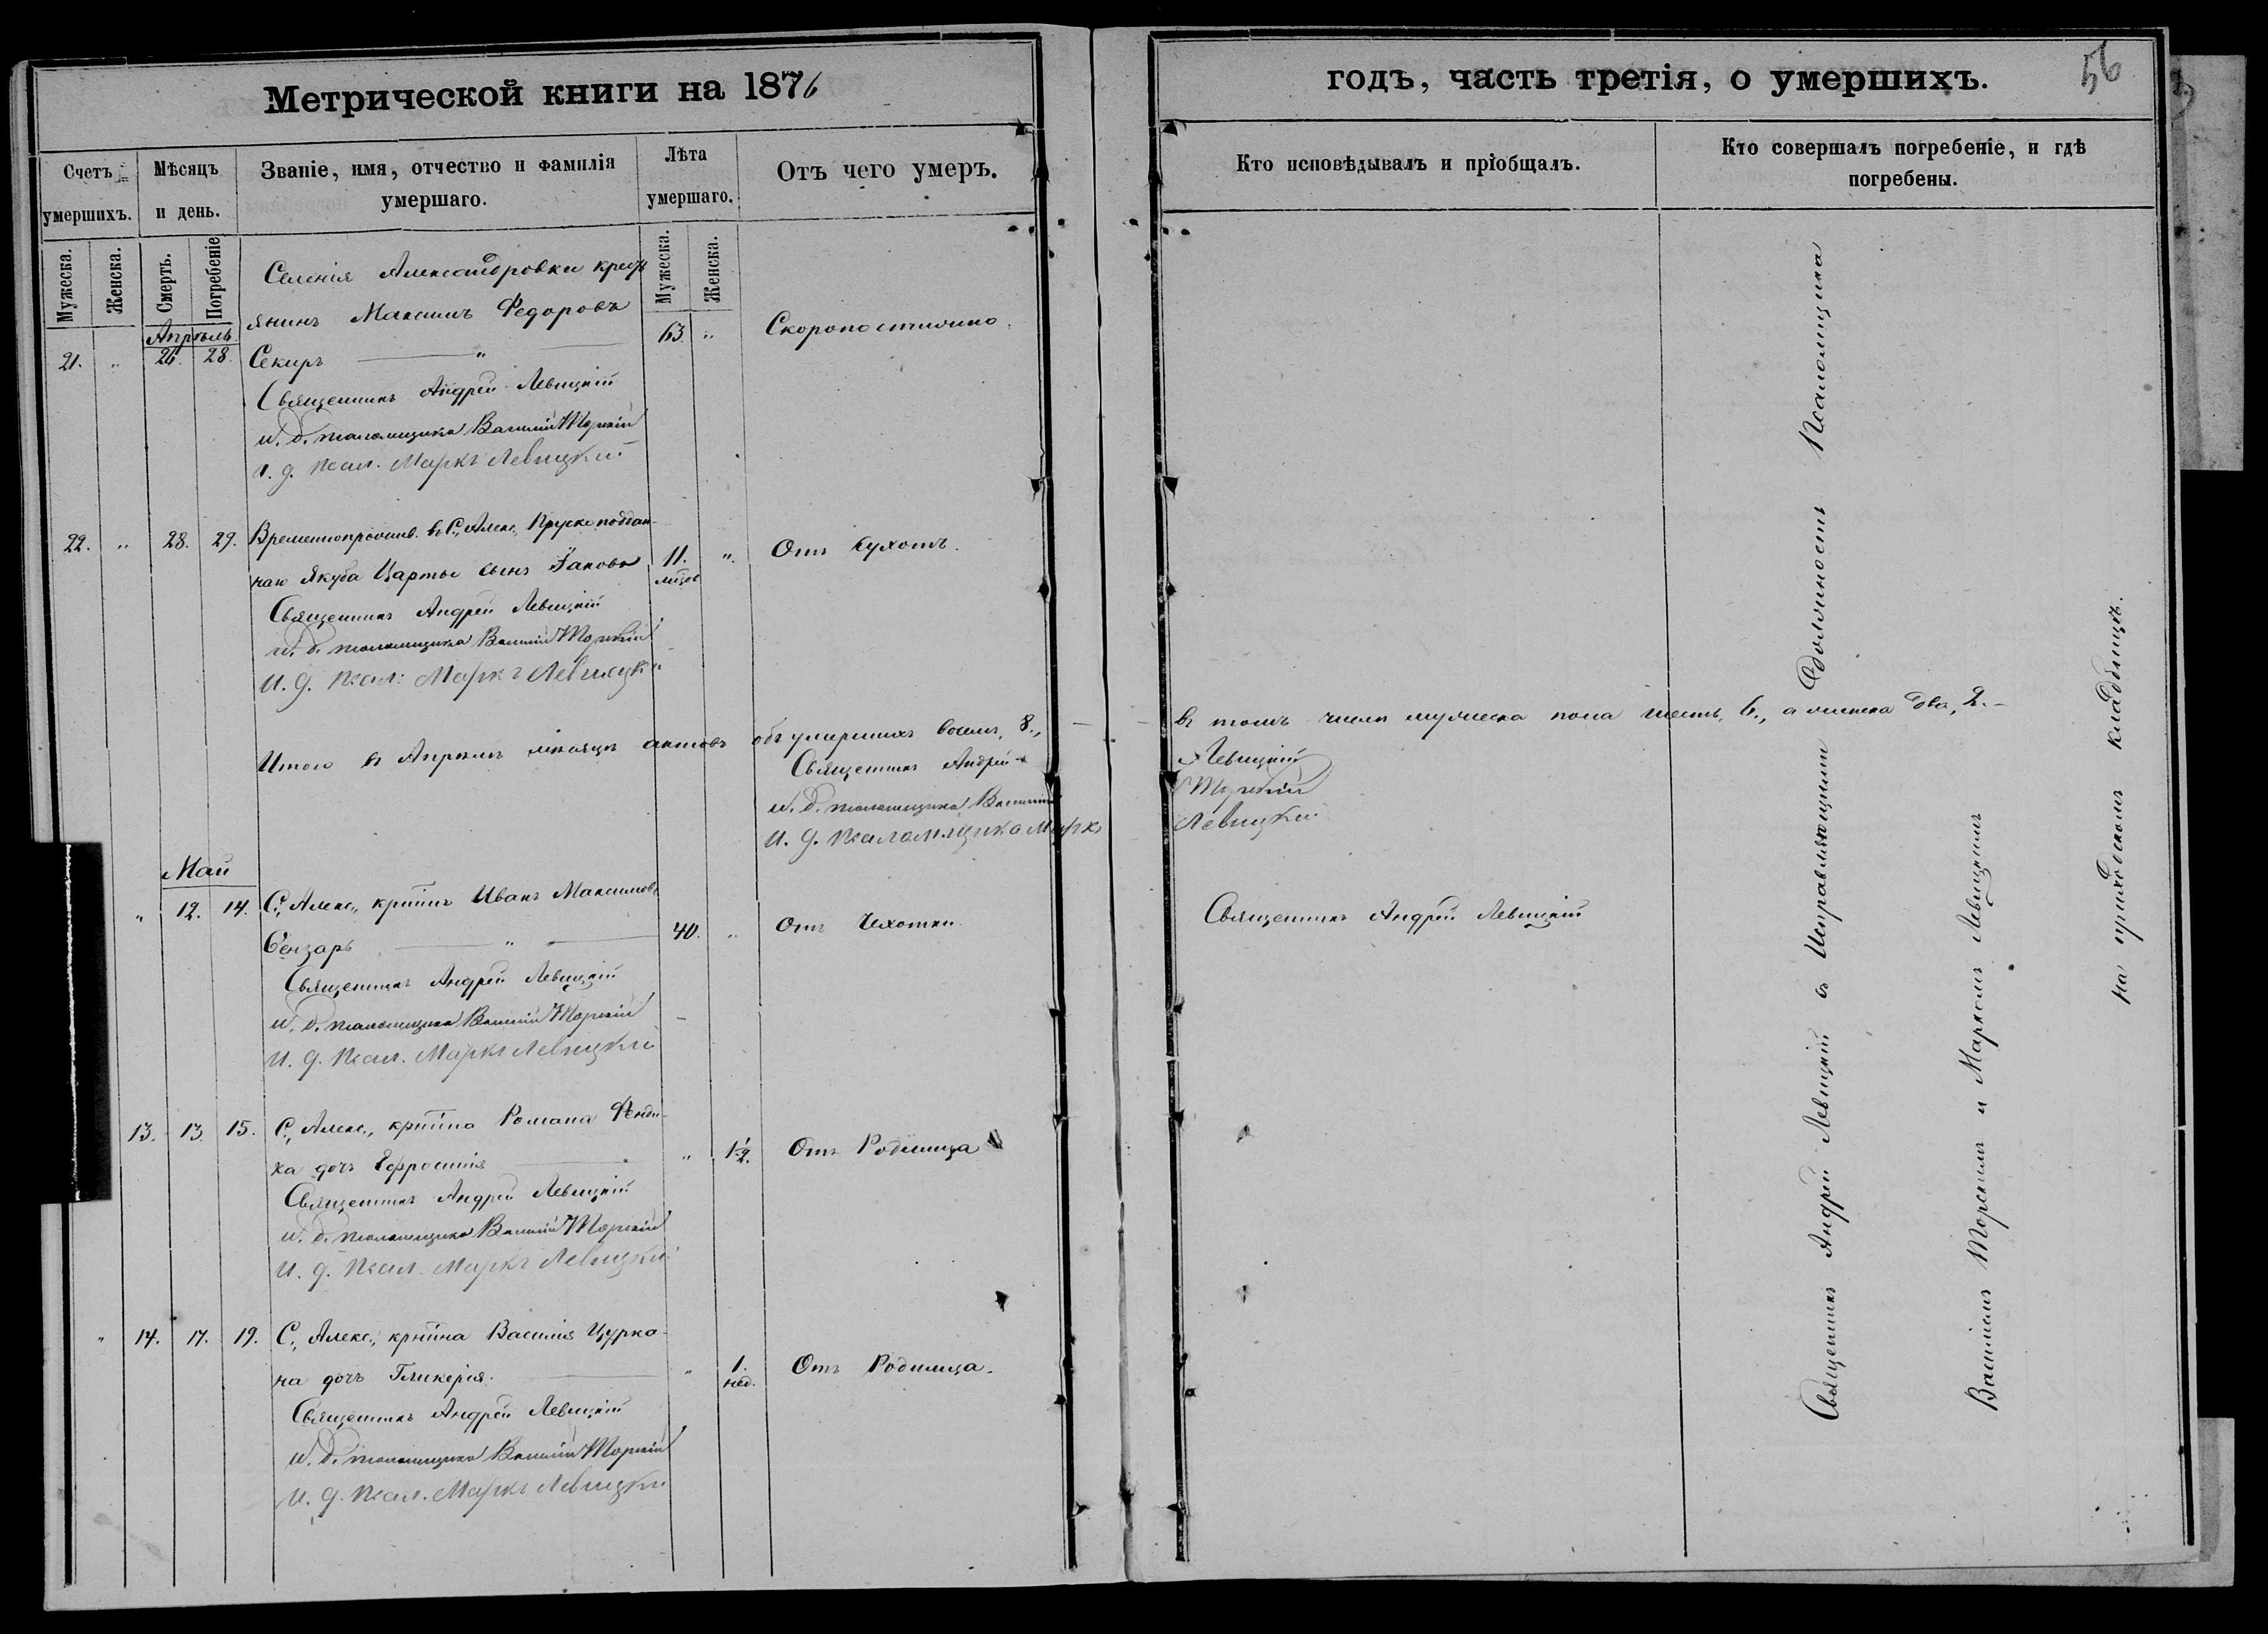 Метрической книги на 1876
годъ, часть третія, о умершихъ.
56
Счетъ умершихъ.
Мѣсяцъ и день.
Званіе, имя, отчество и фамилія умершаго.
Лѣта умершаго.
Отъ чего умеръ.
Кто исповѣдывалъ и пріобщалъ.
Кто совершалъ погребеніе, и гдѣ погребены.
Мужеска.
Женска.
Смерть.
Погребеніе
Мужеска.
Женска.
Апрѣль
Селенія Александровки крест
янинъ Максимъ Федоровъ
21. " 26. 28. Секиръ " 63. " Скоропостижно.
Священникъ Андрей Левицкій
и. д. псаломщика Василій Торскій
и. д. псал. Маркъ Левицкій
22. " 28. 29. Временнопрожив. въ С., Алекс., Прускоподдан-
наго Якуба сынъ Іаковъ 11. мѣсяц " Отъ Сухотъ.
Священникъ Андрей Левицкій
и. д. псаломщика Василій Торскій
И. д. псал: Маркъ Левицкій
Итого въ Апрѣлѣ мѣсяцѣ актовъ объ умершихъ восемь, 8., въ томъ числѣ мужеска пола шесть, 6., а женска два, 2.
Священникъ Андрей Левицкій
и. д. псаломщика Василій Торскій
И. д. псаломщика Маркъ Левицкій
Май
" 12. 14. С., Алекс., крстнинъ Иванъ Максимовъ
Бензарь " 40. " Отъ Чахотки. Священникъ Андрей Левицкій
Священникъ Андрей Левицкій
и. д. псаломщика Василій Торскій
И. д. псал. Маркъ Левицкій
13. 13. 15. С., Алекс., крстнина Романа
ка дочь Ефросинія " 1½. Отъ Родимца
Священникъ Андрей Левицкій
и. д. псаломщика Василій Торскій
И. д. псал. Маркъ Левицкій
" 14. 17. 19. С., Алекс., крстнина Василія Цурка-
на дочь Гликерія. " 1. нед. Отъ Родимца.
Священникъ Андрей Левицкій
и. д. псаломщика Василій Торскій
И. д. псал. Маркъ Левицкій
Священникъ Андрей Левицкій съ Исправляющими Должность Псаломщика
Василіемъ Торскимъ и Маркомъ Левицкимъ
на приходскомъ кладбищѣ.